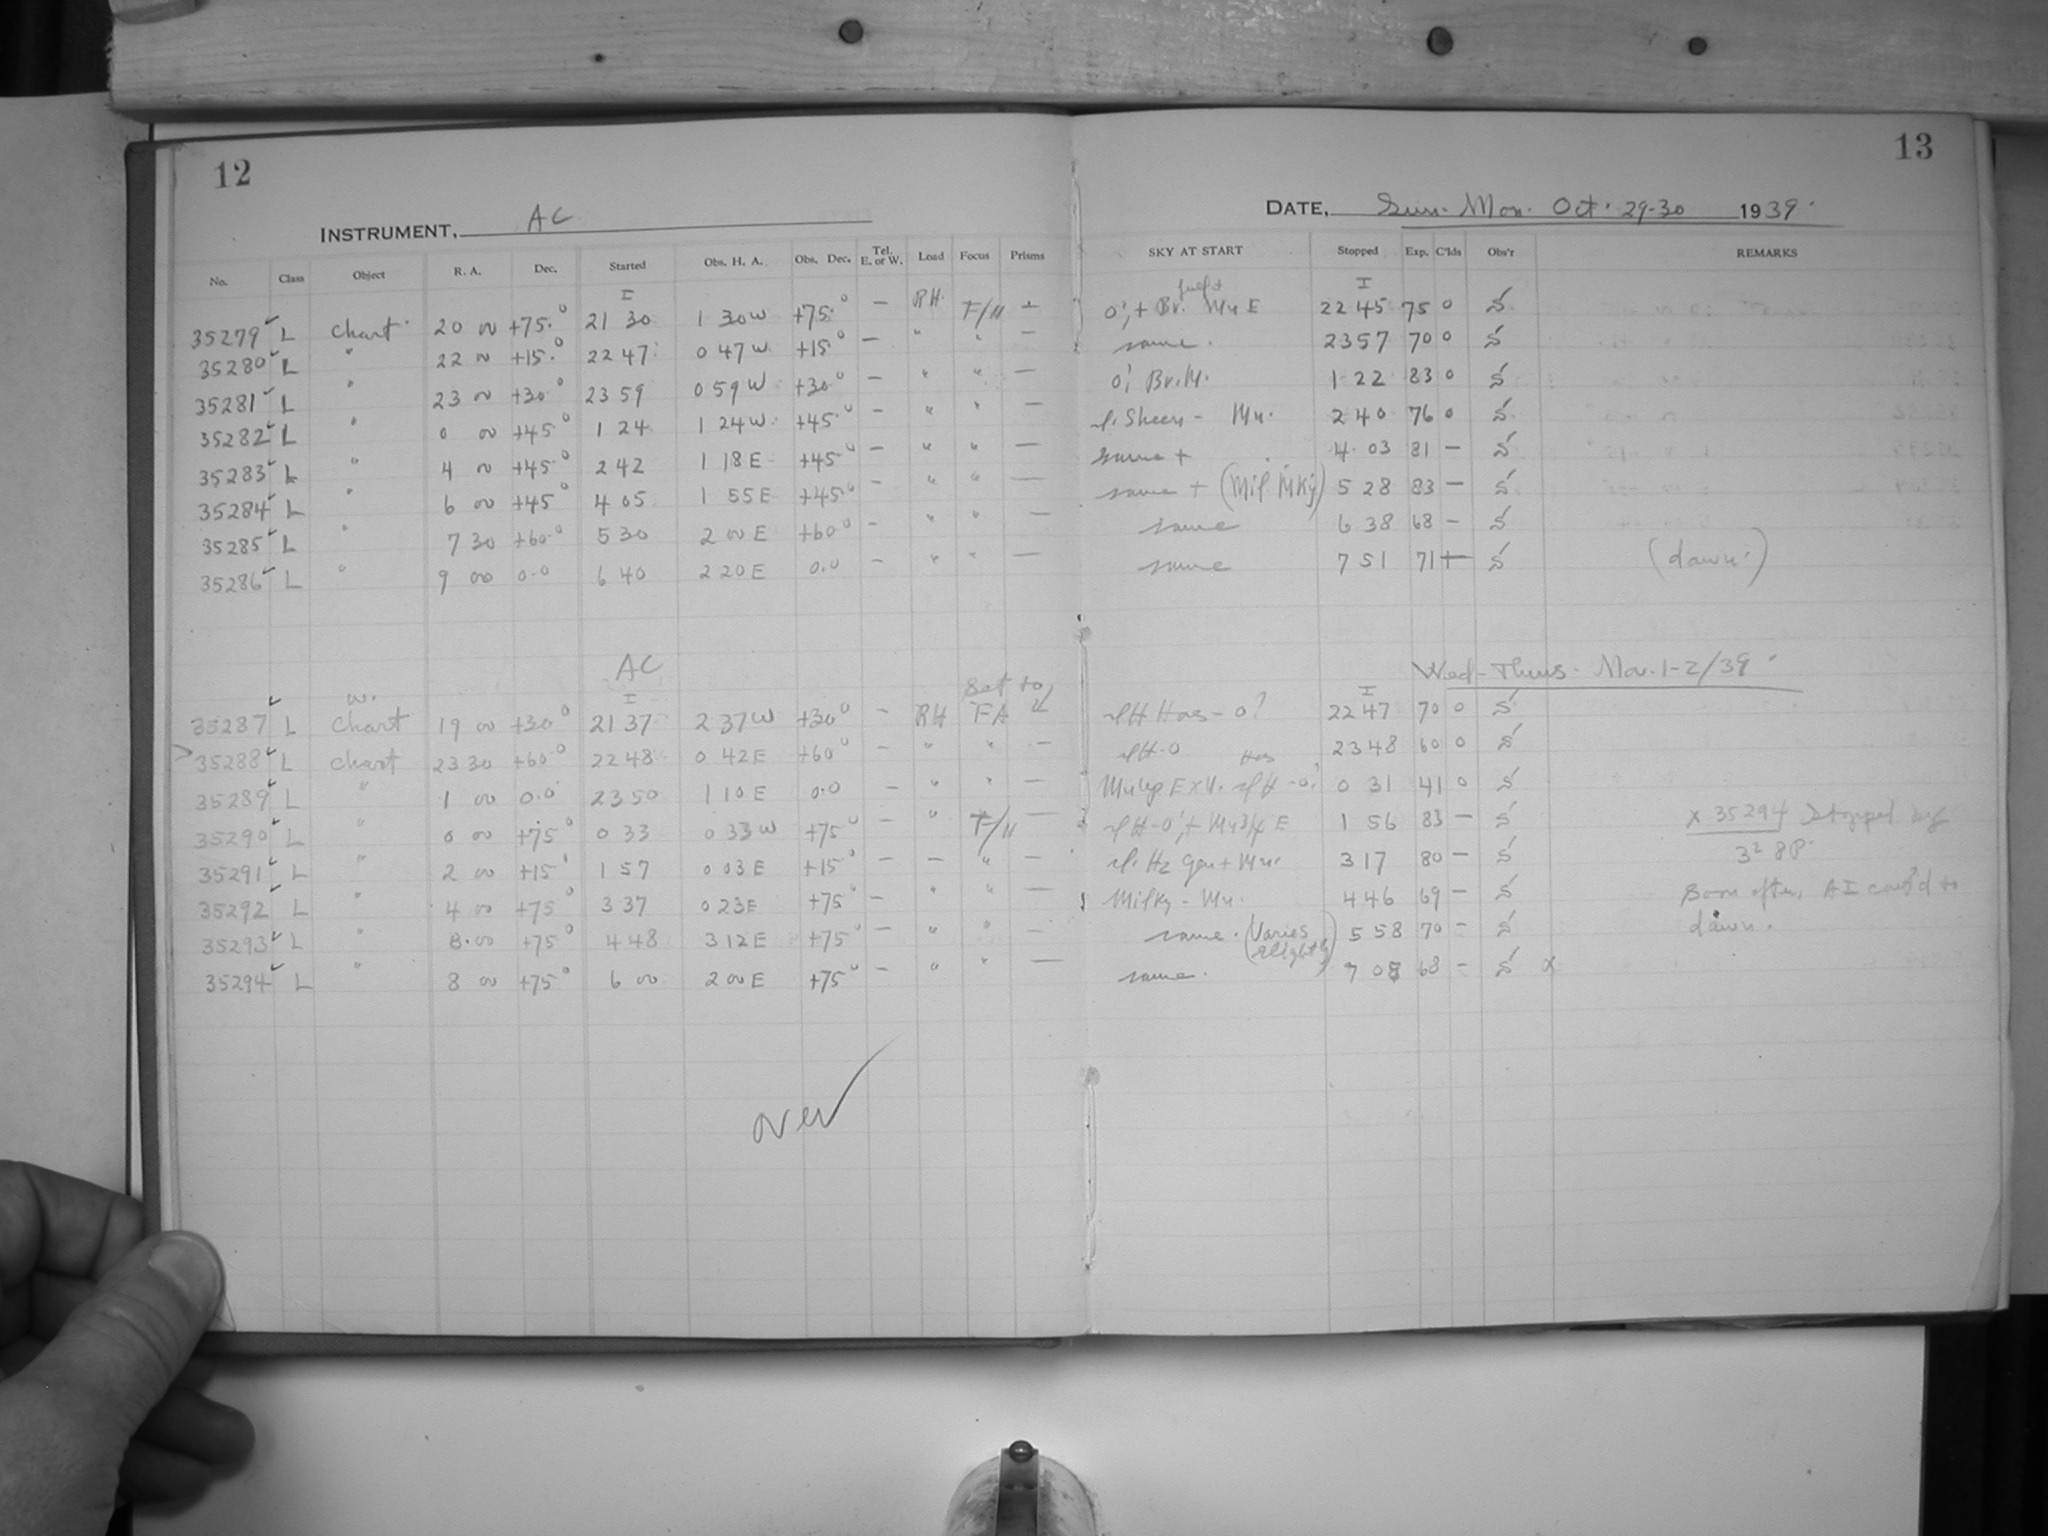 12
13
INSTRUMENT, AC
DATE, Sun-Mon. Oct. 29-30 1939.
No. Class Object R. A. Dec. Started Obs. H. A. Obs. Dec. Tel. E. or W. Load Focus Prisms SKY AT START Stopped Exp. C'lds Obs'r REMARKS
I I
35279 L Chart 20 00 +75.° 21 30 1 30 W +75.° — RH. F/11 — Br. Mn E 22 45 75 0 S
35280 L " 22 00 +15.° 22 47 0 47 W +15° — " " — same. 23 57 70 0 S
35281 L " 23 00 +30° 23 59 0 59 W +30° — " " — Br. M. 1 22 83 0 S
35282 L " 0 00 +45° 1 24 1 24 W +45.° — " " — Sheen - Mn. 2 40 76 0 S
35283 L " 4 00 +45° 2 42 1 18 E +45° — " " — same + 4 03 81 — S
35284 L " 6 00 +45° 4 05 1 55 E +45° — " " — same + 5 28 83 — S
35285 L " 7 30 +60° 5 30 2 00 E +60° — " " — same 6 38 68 — S
35286 L " 9 00 0.0 6 40 2 20 E 0.0 — " " — same 7 51 71 + S (dawn.)
AC
Wed-Thurs- Nov. 1-2/39
w. I Set to I
35287 L Chart 19 00 +30° 21 37 2 37 W +30° — RH FA 22 47 70 0 S
> 35288 L Chart 23 30 +60° 22 48 0 42 E +60° — " " — 23 48 60 0 S
35289 L " 1 00 0.0 23 50 1 10 E 0.0 — " " — 0 31 41 0 S
35290 L " 0 00 +75° 0 33 0 33 W +75° — " F/11 — 1 56 83 — S x 35294 Stopped by
35291 L " 2 00 +15° 1 57 0 03 E +15° — — " — Hz gen + Mn. 3 17 80 — S
35292 L " 4 00 +75° 3 37 0 23 E +75° — " " — Milky - Mn. 4 46 69 — S Soon after, AI cont'd to
35293 L " 8.00 +75° 4 48 3 12 E +75° — " " — same. (Varies slightly) 5 58 70 — S dawn.
35294 L " 8 00 +75° 6 00 2 00 E +75° — " " — same. 7 08 68 — S x
over